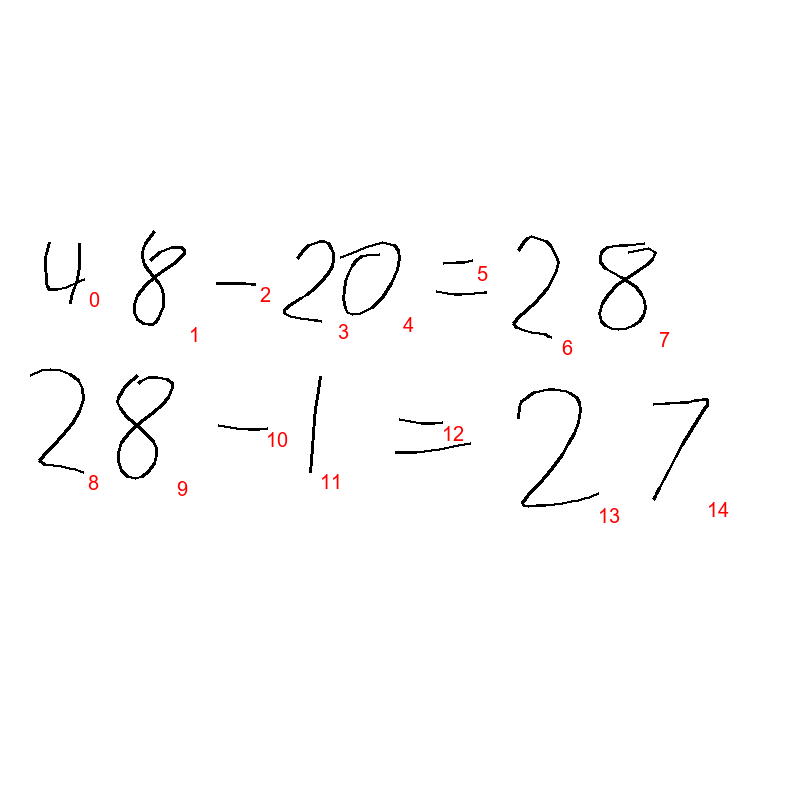 48-20=28
0 1 2 3 4 5 6 7
28-1=27
8 9 10 11 12 13 14